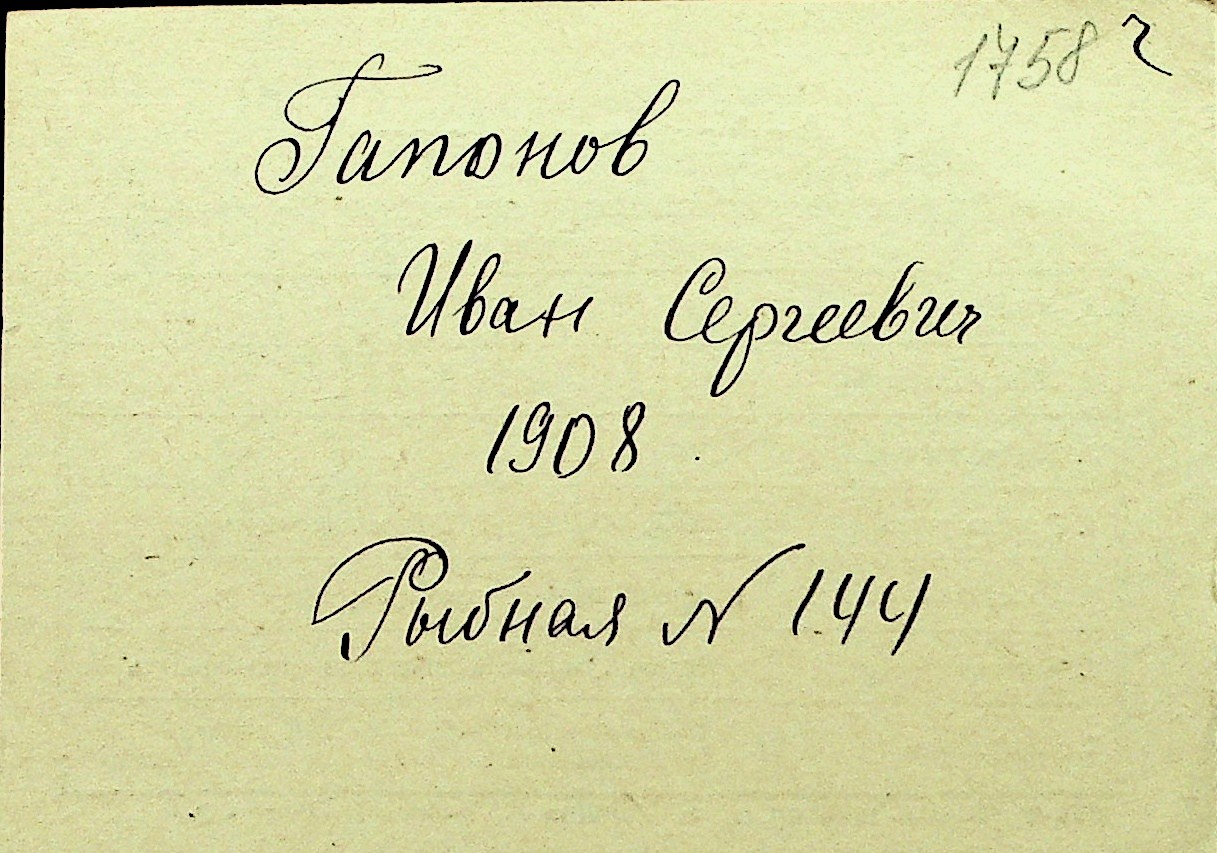 1758 г
Гапонов
Иван Сергеевич
1908
Рыбная № 144